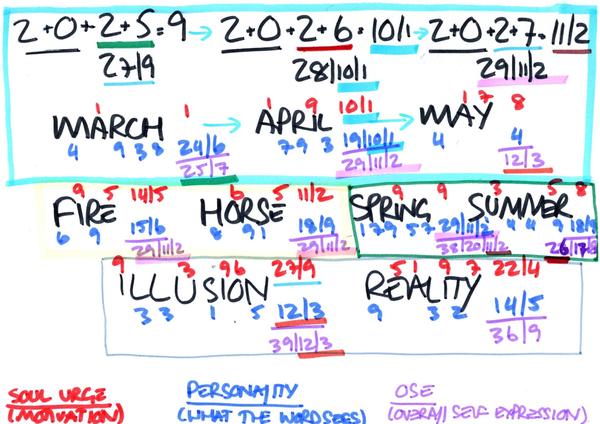 2+0+2+5=9 → 2+0+2+6=10/1 → 2+0+2+7=11/2
27/9 28/10/1 29/11/2
1 1 1 9 10/1 1 7 8
MARCH → APRIL → MAY
4 9 3 8 24/6 7 9 3 19/10/1 4 4
25/7 29/11/2 12/3
9 5 14/5 6 5 11/2 9 9 3 5 8
FIRE HORSE SPRING SUMMER
6 9 15/6 8 9 1 18/9 1 7 9 5 7 29/11/2 4 4 9 18/9
29/11/2 29/11/2 38/20/11/2 26/17/8
9 3 9 6 27/9 5 1 9 7 22/4
ILLUSION REALITY
3 3 1 5 12/3 9 3 2 14/5
39/12/3 36/9
SOUL URGE PERSONALITY OSE
(MOTIVATION) (WHAT THE WORLD SEES) (OVERALL SELF EXPRESSION)